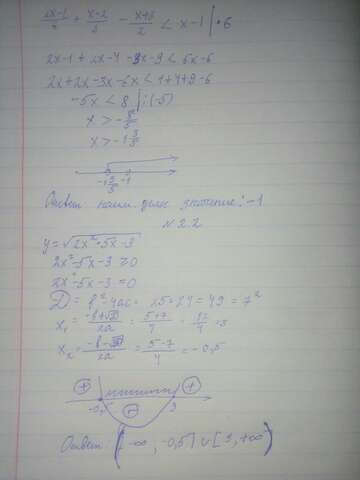 (2x-1)/6 + (x-2)/3 - (x+3)/2 < x-1 | · 6
2x-1 + 2x-4 - 3x-9 < 6x-6
2x+2x-3x-6x < 1+4+9-6
-5x < 8 | : (-5)
x > -8/5
x > -1 3/5
-1 3/5 -1
Ответ: наим. целое значение: -1
№ 2.2
y = √(2x² - 5x - 3)
2x² - 5x - 3 ≥ 0
2x² - 5x - 3 = 0
D = b² - 4ac = 25 + 24 = 49 = 7²
x₁ = (-b+√D)/2a = (5+7)/4 = 12/4 = 3
x₂ = (-b-√D)/2a = (5-7)/4 = -0,5
+ - +
-0,5 3
Ответ: (-∞; -0,5] ∪ [3, +∞)